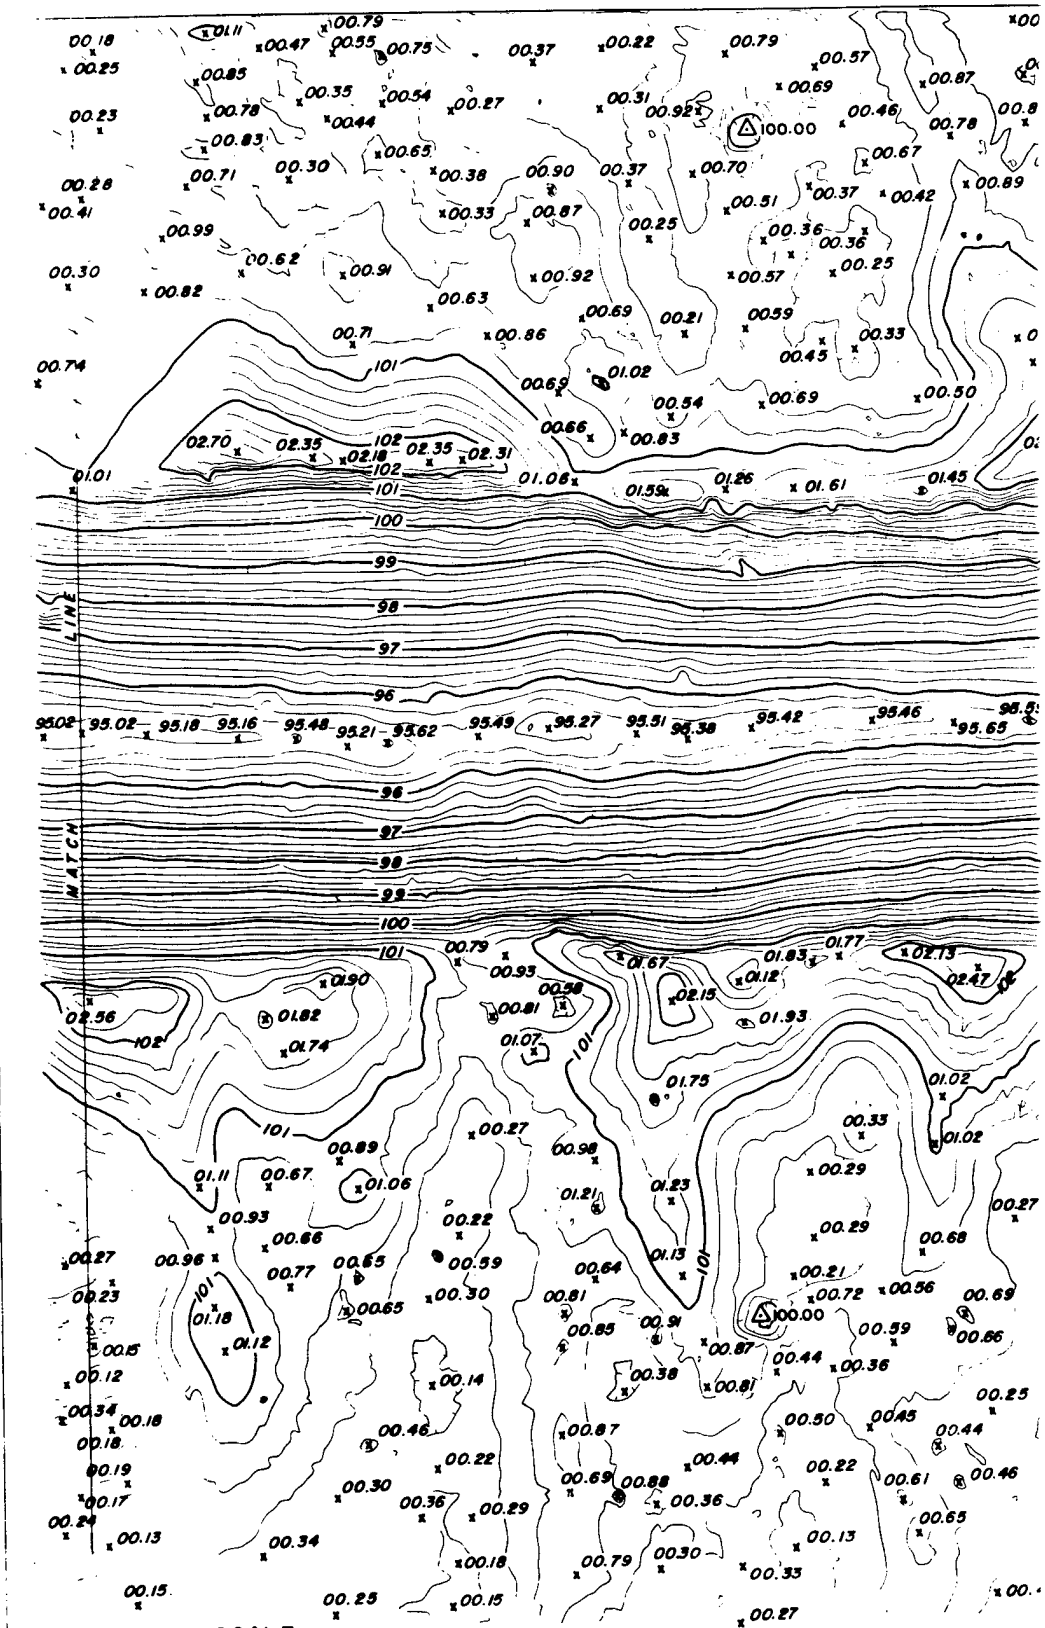 00.79
01.11
00.18 00.47 00.55 00.75 00.37 00.22 00.79
00.25 00.85 00.57
00.35 00.54 00.27 00.31 00.69 00.87
00.23 00.78 00.44 00.92 100.00 00.46 00.78
00.83 00.65 00.67
00.28 00.71 00.30 00.38 00.90 00.37 00.70 00.37 00.42 00.89
00.41 00.33 00.87 00.51
00.99 00.25 00.36 00.36
00.30 00.62 00.91 00.92 00.57 00.25
00.82 00.63
00.71 00.86 00.69 00.21 00.59 00.45 00.33
00.74 101 00.69 01.02
00.54 00.69 00.50
02.70 02.35 102 02.35 02.31 00.66 00.83
02.18
102
01.01 101 01.06 01.59 01.26 01.61 01.45
100
99
98
LINE
97
96
95.02 95.02 95.18 95.16 95.48 95.21 95.62 95.49 95.27 95.51 95.38 95.42 95.46 95.65
96
97
MATCH
98
99
100
101 00.79 00.93 01.67 01.83 01.77 02.73
01.90 00.58 02.15 01.12 02.47 102
02.56 01.82 00.81 01.93
102 01.74 01.07 101
01.75 01.02
101 00.27 00.33 01.02
00.89 00.98
01.11 00.67 01.06 01.21 01.23 00.29
00.93 00.66 00.22 00.29 00.27
00.96 00.68
00.27 00.77 00.65 00.59 00.64 01.13 101 00.21 00.56
00.23 101 00.65 00.30 00.81 00.72 00.69
01.18 100.00
00.15 01.12 00.85 00.91 00.87 00.59 00.66
00.12 00.14 00.38 00.81 00.44 00.36
00.34 00.18 00.25
00.18 00.46 00.87 00.50 00.45 00.44
00.19 00.22 00.44
00.17 00.30 00.69 00.88 00.22 00.61 00.46
00.24 00.36 00.29 00.36 00.65
00.13 00.34 00.13
00.18 00.79 00.30 00.33
00.15 00.25 00.15 00.27